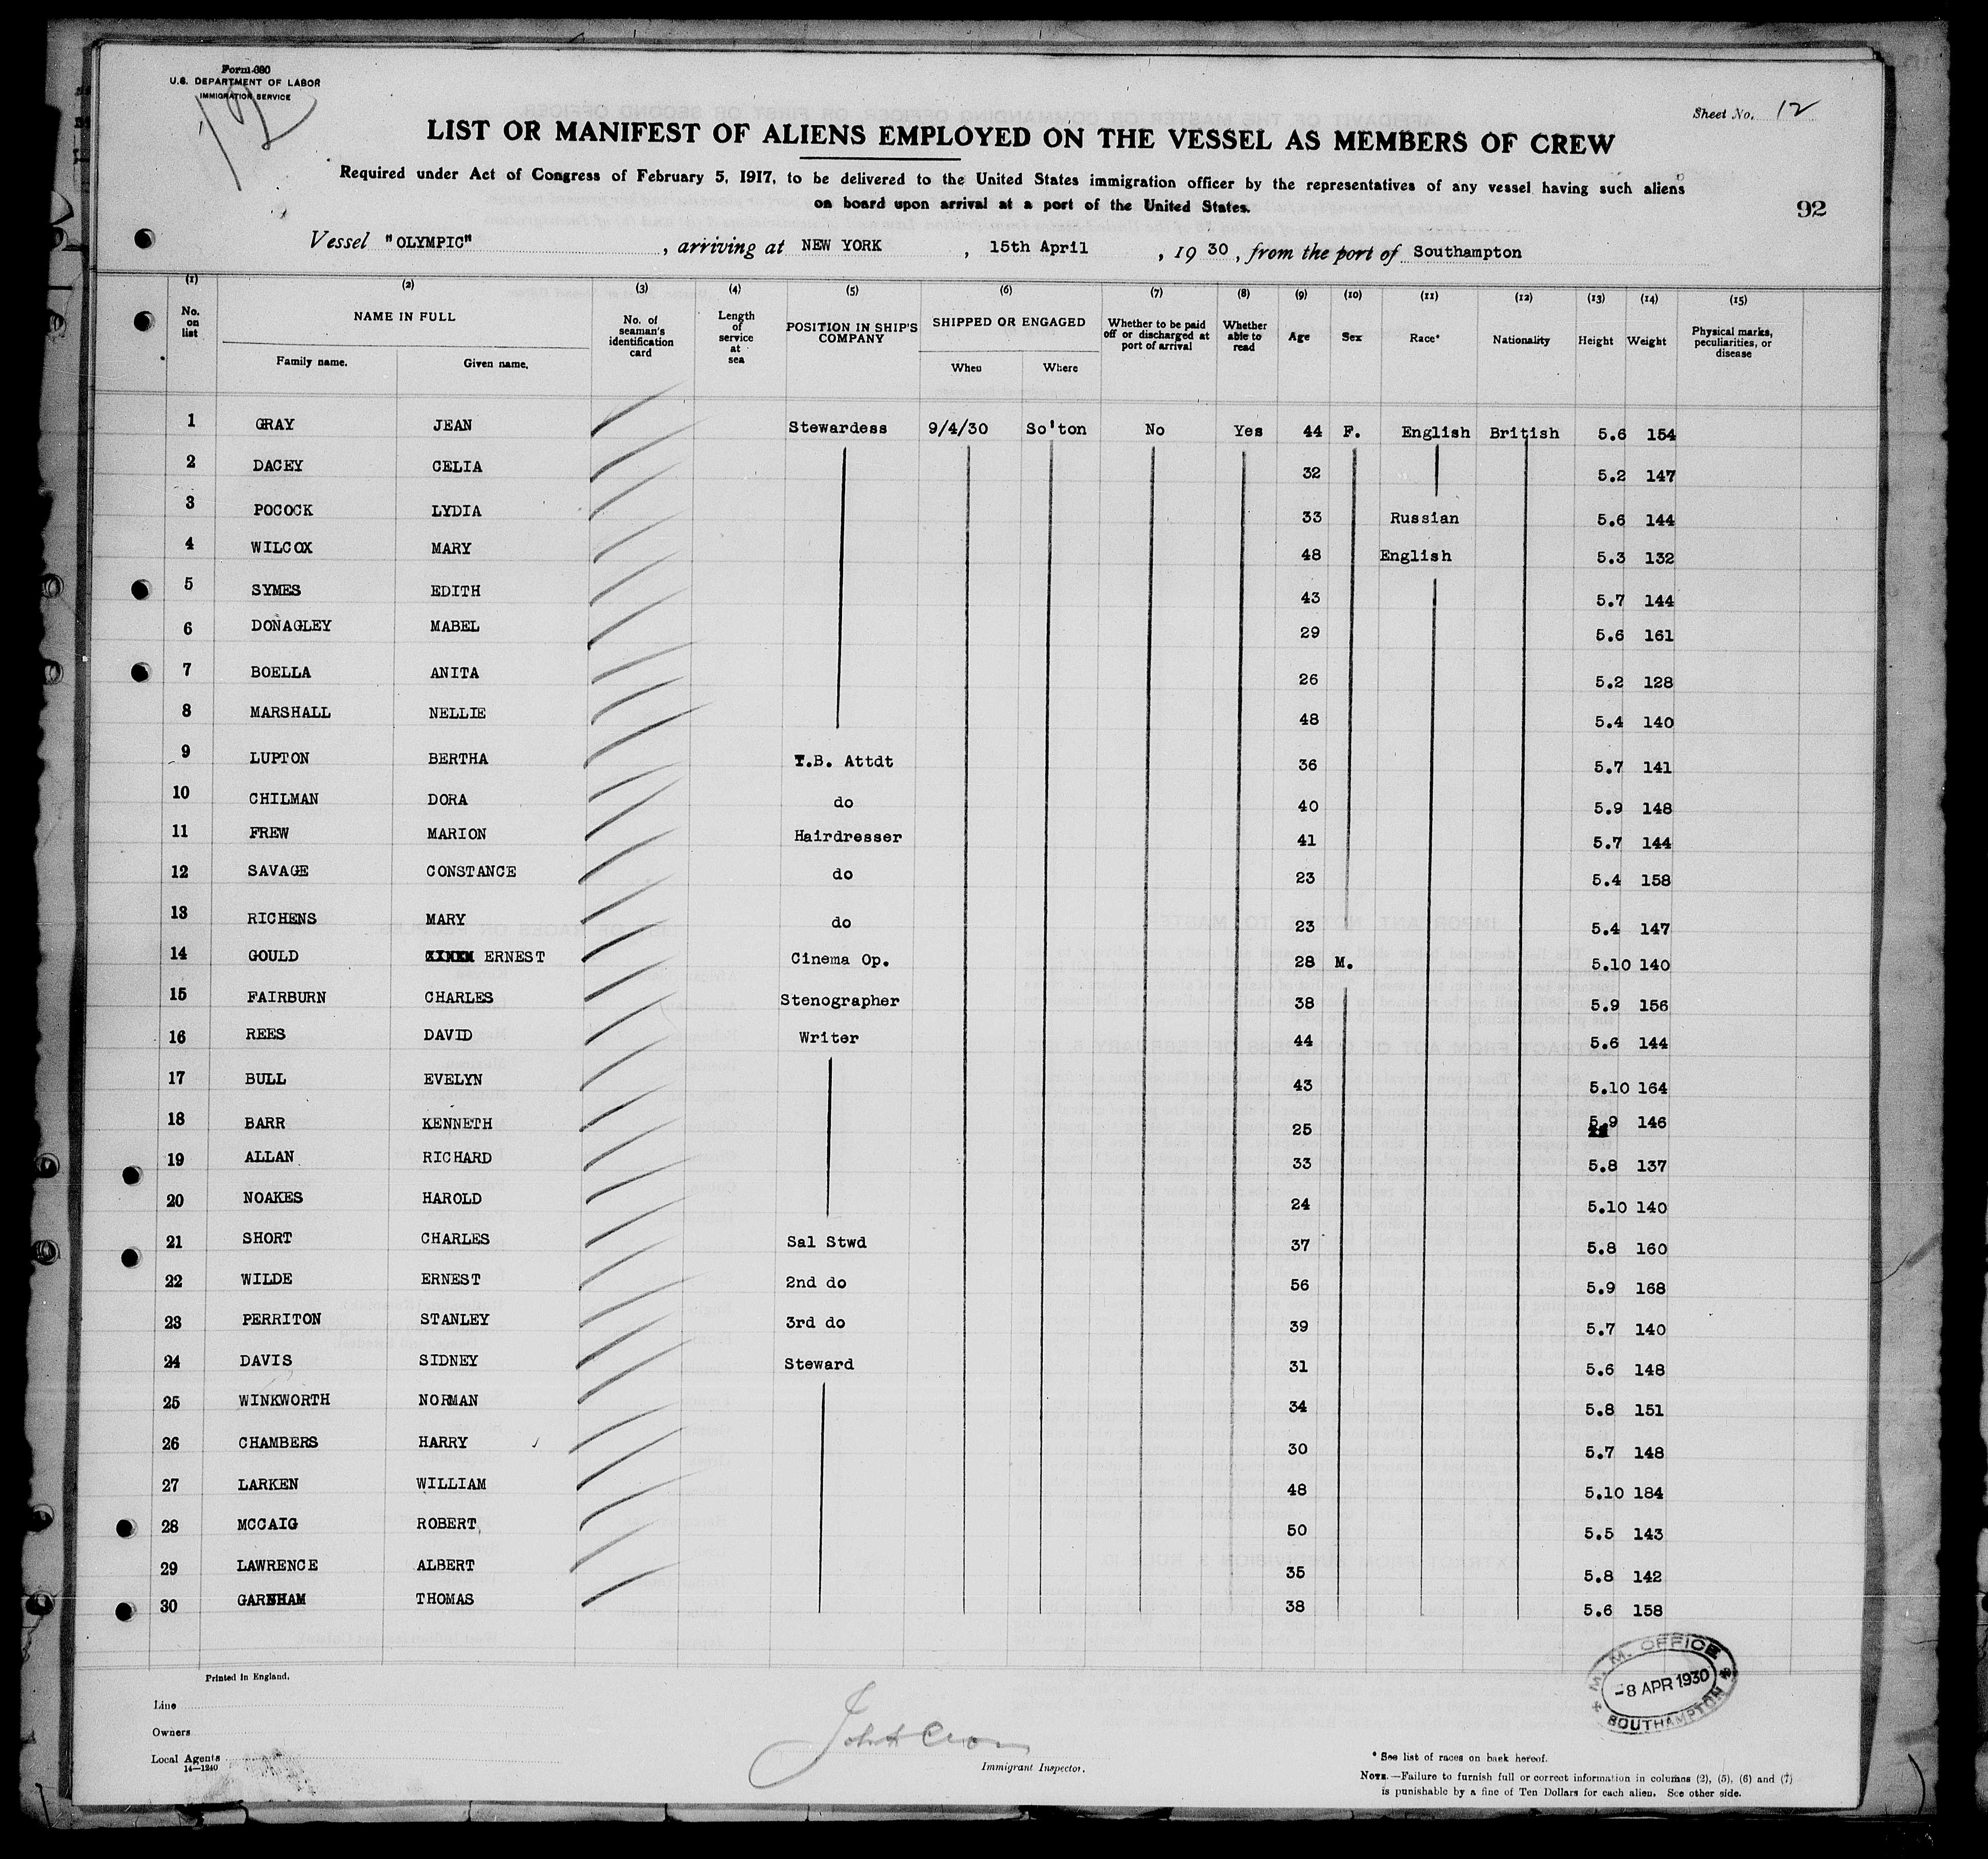 Form 680
U.S. DEPARTMENT OF LABOR
IMMIGRATION SERVICE
12
Sheet No. 12
LIST OR MANIFEST OF ALIENS EMPLOYED ON THE VESSEL AS MEMBERS OF CREW
Required under Act of Congress of February 5, 1917, to be delivered to the United States immigration officer by the representatives of any vessel having such aliens
on board upon arrival at a port of the United States.
92
Vessel "OLYMPIC", arriving at NEW YORK, 15th April, 1930, from the port of Southampton
(1) (2) (3) (4) (5) (6) (7) (8) (9) (10) (11) (12) (13) (14) (15)
No. on list NAME IN FULL Family name. Given name. No. of seaman's identification card Length of service at sea POSITION IN SHIP'S COMPANY SHIPPED OR ENGAGED When Where Whether to be paid off or discharged at port of arrival Whether able to read Age Sex Race* Nationality Height Weight Physical marks, peculiarities, or disease
1 GRAY JEAN Stewardess 9/4/30 So'ton No Yes 44 F. English British 5.6 154
2 DACEY CELIA 32 5.2 147
3 POCOCK LYDIA 33 Russian 5.6 144
4 WILCOX MARY 48 English 5.3 132
5 SYMES EDITH 43 5.7 144
6 DONAGLEY MABEL 29 5.6 161
7 BOELLA ANITA 26 5.2 128
8 MARSHALL NELLIE 48 5.4 140
9 LUPTON BERTHA T.B. Attdt 36 5.7 141
10 CHILMAN DORA do 40 5.9 148
11 FREW MARION Hairdresser 41 5.7 144
12 SAVAGE CONSTANCE do 23 5.4 158
13 RICHENS MARY do 23 5.4 147
14 GOULD ERNEST Cinema Op. 28 M. 5.10 140
15 FAIRBURN CHARLES Stenographer 38 5.9 156
16 REES DAVID Writer 44 5.6 144
17 BULL EVELYN 43 5.10 164
18 BARR KENNETH 25 5.9 146
19 ALLAN RICHARD 33 5.8 137
20 NOAKES HAROLD 24 5.10 140
21 SHORT CHARLES Sal Stwd 37 5.8 160
22 WILDE ERNEST 2nd do 56 5.9 168
23 PERRITON STANLEY 3rd do 39 5.7 140
24 DAVIS SIDNEY Steward 31 5.6 148
25 WINKWORTH NORMAN 34 5.8 151
26 CHAMBERS HARRY 30 5.7 148
27 LARKEN WILLIAM 48 5.10 184
28 MCCAIG ROBERT 50 5.5 143
29 LAWRENCE ALBERT 35 5.8 142
30 GARNHAM THOMAS 38 5.6 158
Printed in England.
Line
Owners
Local Agents
14—1240
Immigrant Inspector.
M. M. OFFICE
-8 APR 1930
SOUTHAMPTON
* See list of races on back hereof.
NOTE.—Failure to furnish full or correct information in columns (2), (5), (6) and (7)
is punishable by a fine of Ten Dollars for each alien. See other side.